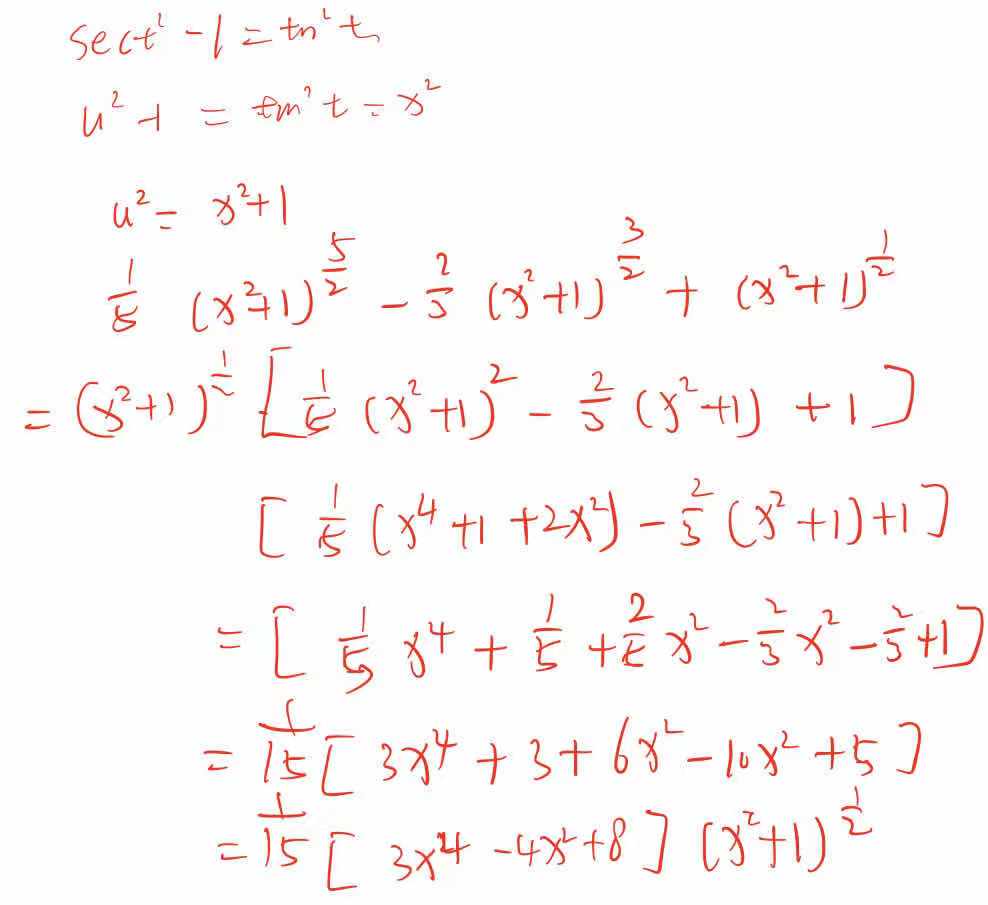 sect² - 1 = tn² t
u² - 1 = tan² t = x²
u² = x² + 1
1/5 (x²+1)^(5/2) - 2/3 (x²+1)^(3/2) + (x²+1)^(1/2)
= (x²+1)^(1/2) [ 1/5 (x²+1)² - 2/3 (x²+1) + 1 ]
[ 1/5 (x⁴ + 1 + 2x²) - 2/3 (x²+1) + 1 ]
= [ 1/5 x⁴ + 1/5 + 2/5 x² - 2/3 x² - 2/3 + 1 ]
= 1/15 [ 3x⁴ + 3 + 6x² - 10x² + 5 ]
= 1/15 [ 3x⁴ - 4x² + 8 ] (x²+1)^(1/2)